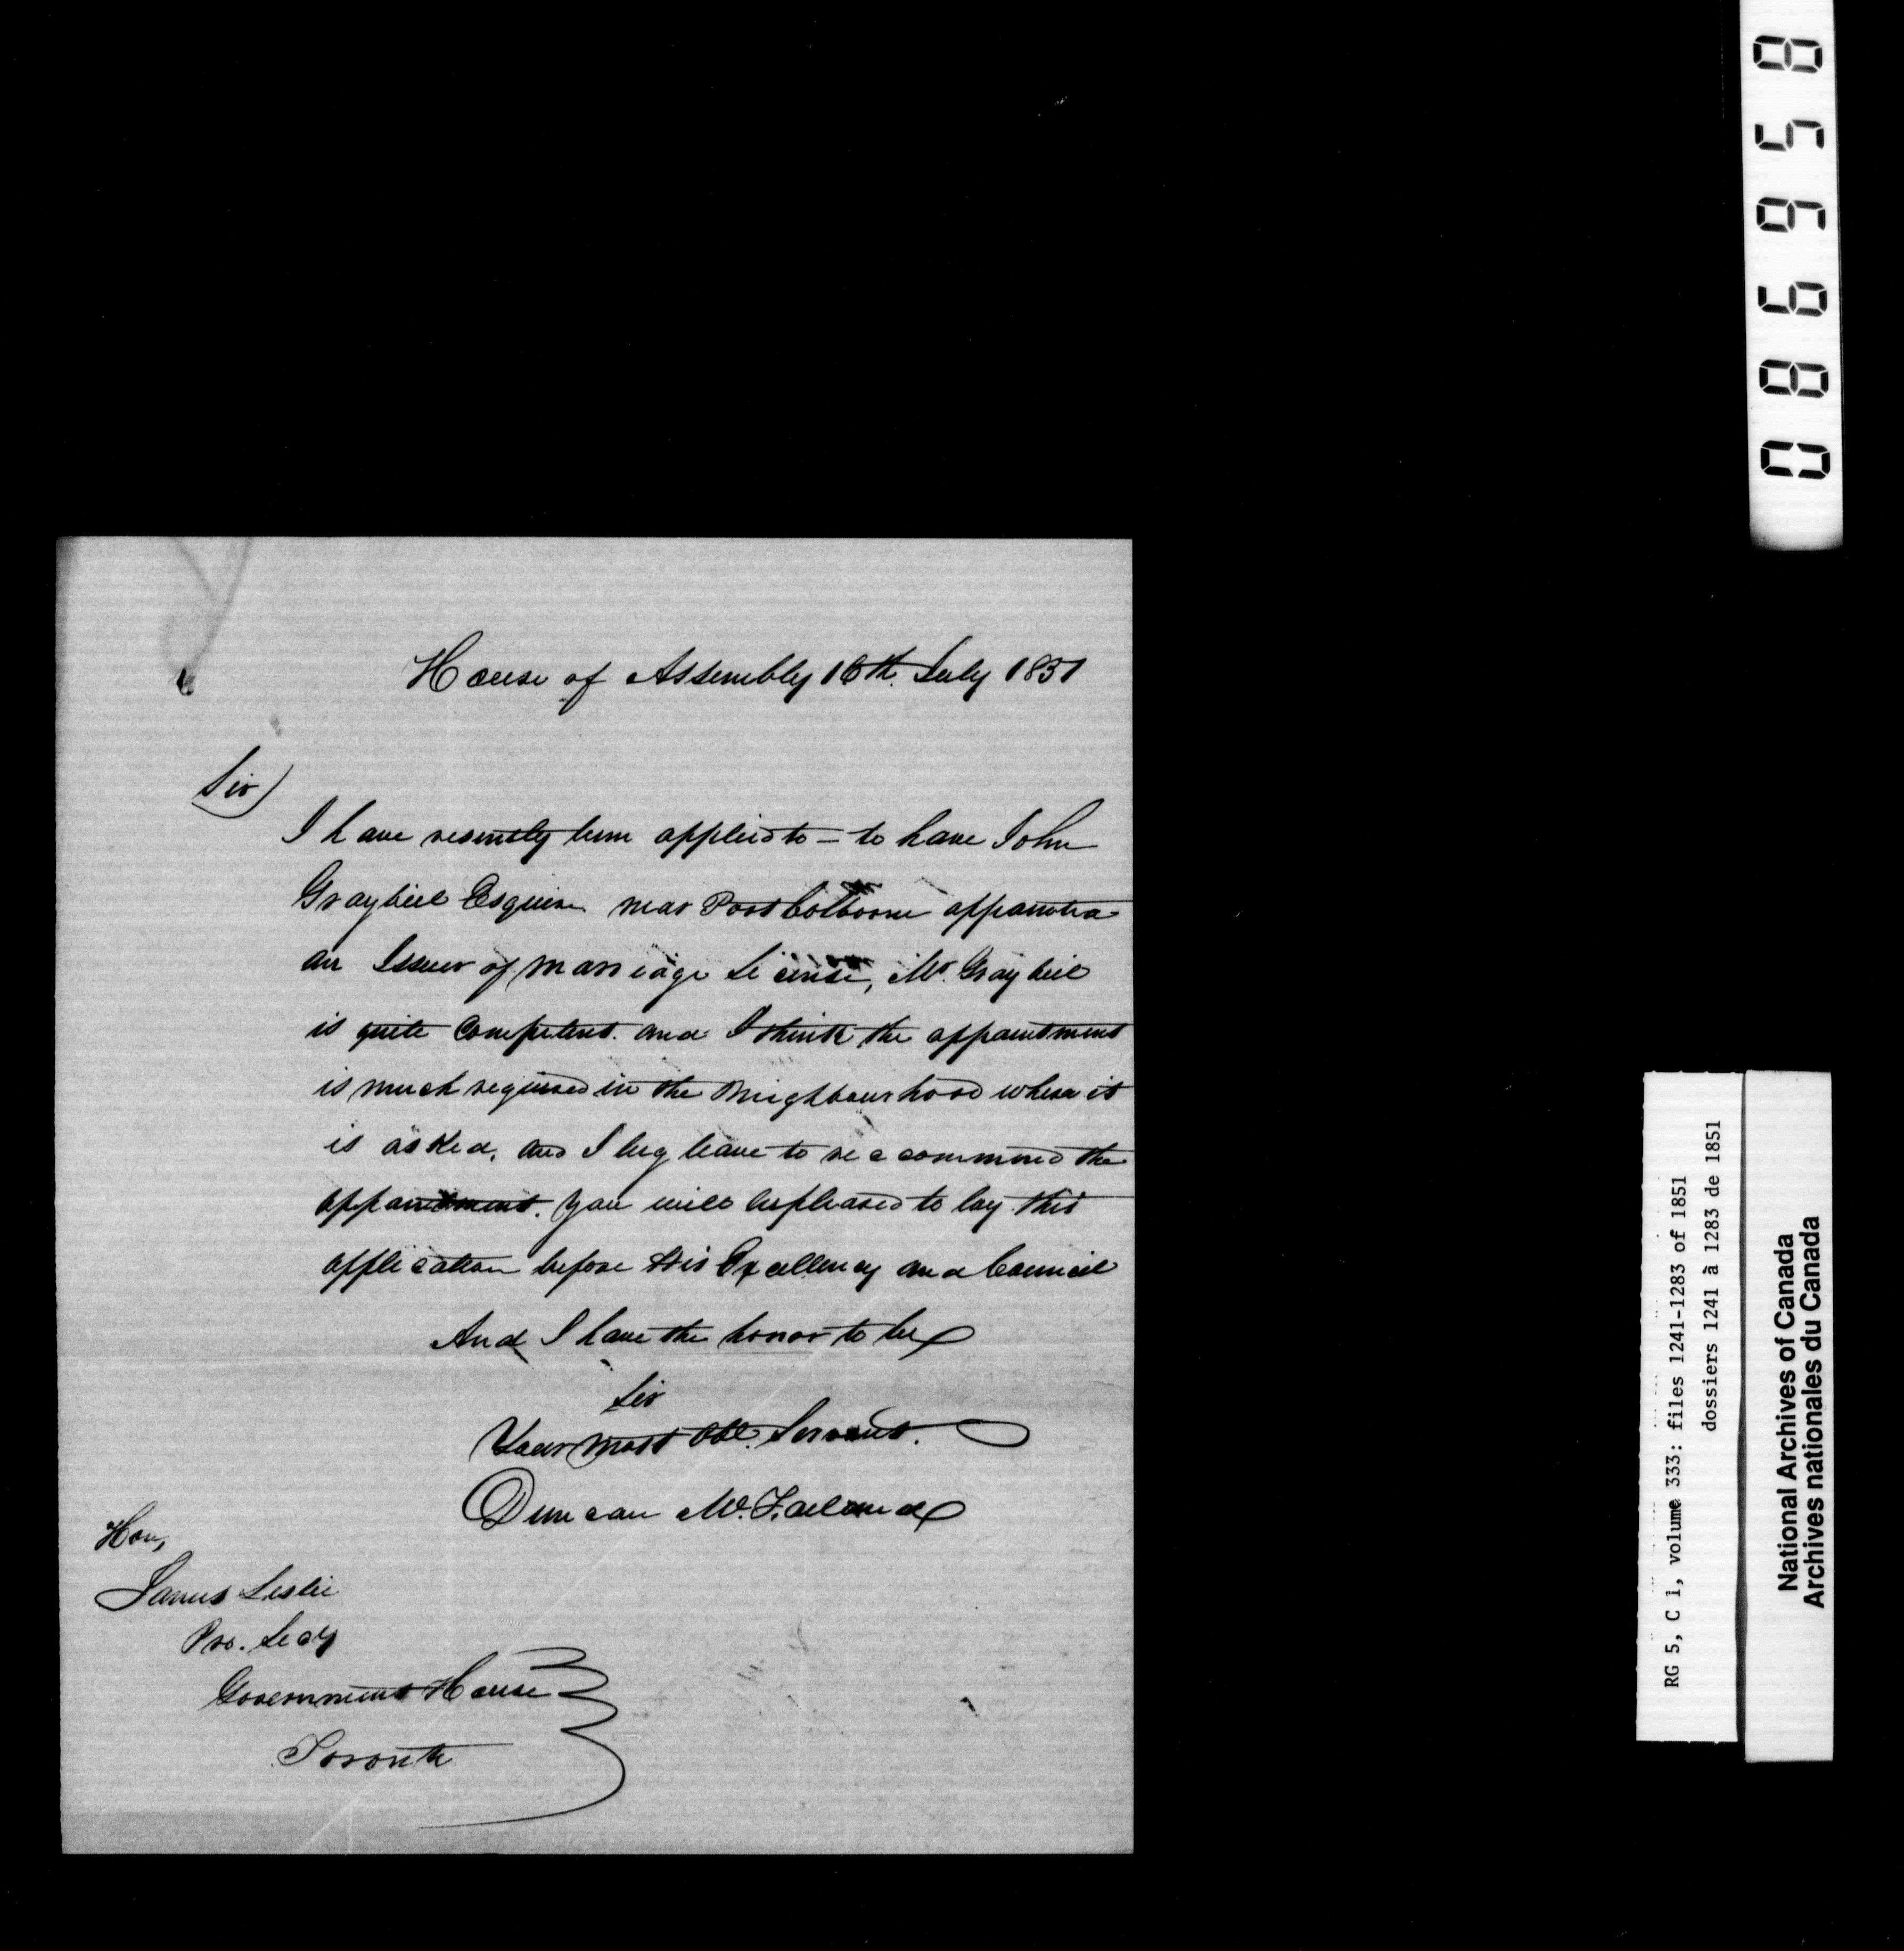 House of Assembly 16th. July 1851
Sir
I have resently been applied to – to have John
Graybiel Esquire near Port Colborne appointed
an Issuer of marriage License, Mr. Graybiel
is quite Competent. and I think the appointment
is much required in the Neighbourhood where it
is asked, and I beg leave to reccommend the
appointment. You will be pleased to lay this
application before His Excellency and Council
And I have the honor to be
Sir
Your most Obt. Servant.
Duncan McFarland
Hon,
James Leslie
Pro. Secy
Government House
Toronto
086958
RG 5, C 1, volume 333: files 1241-1283 of 1851
dossiers 1241 à 1283 de 1851
National Archives of Canada
Archives nationales du Canada